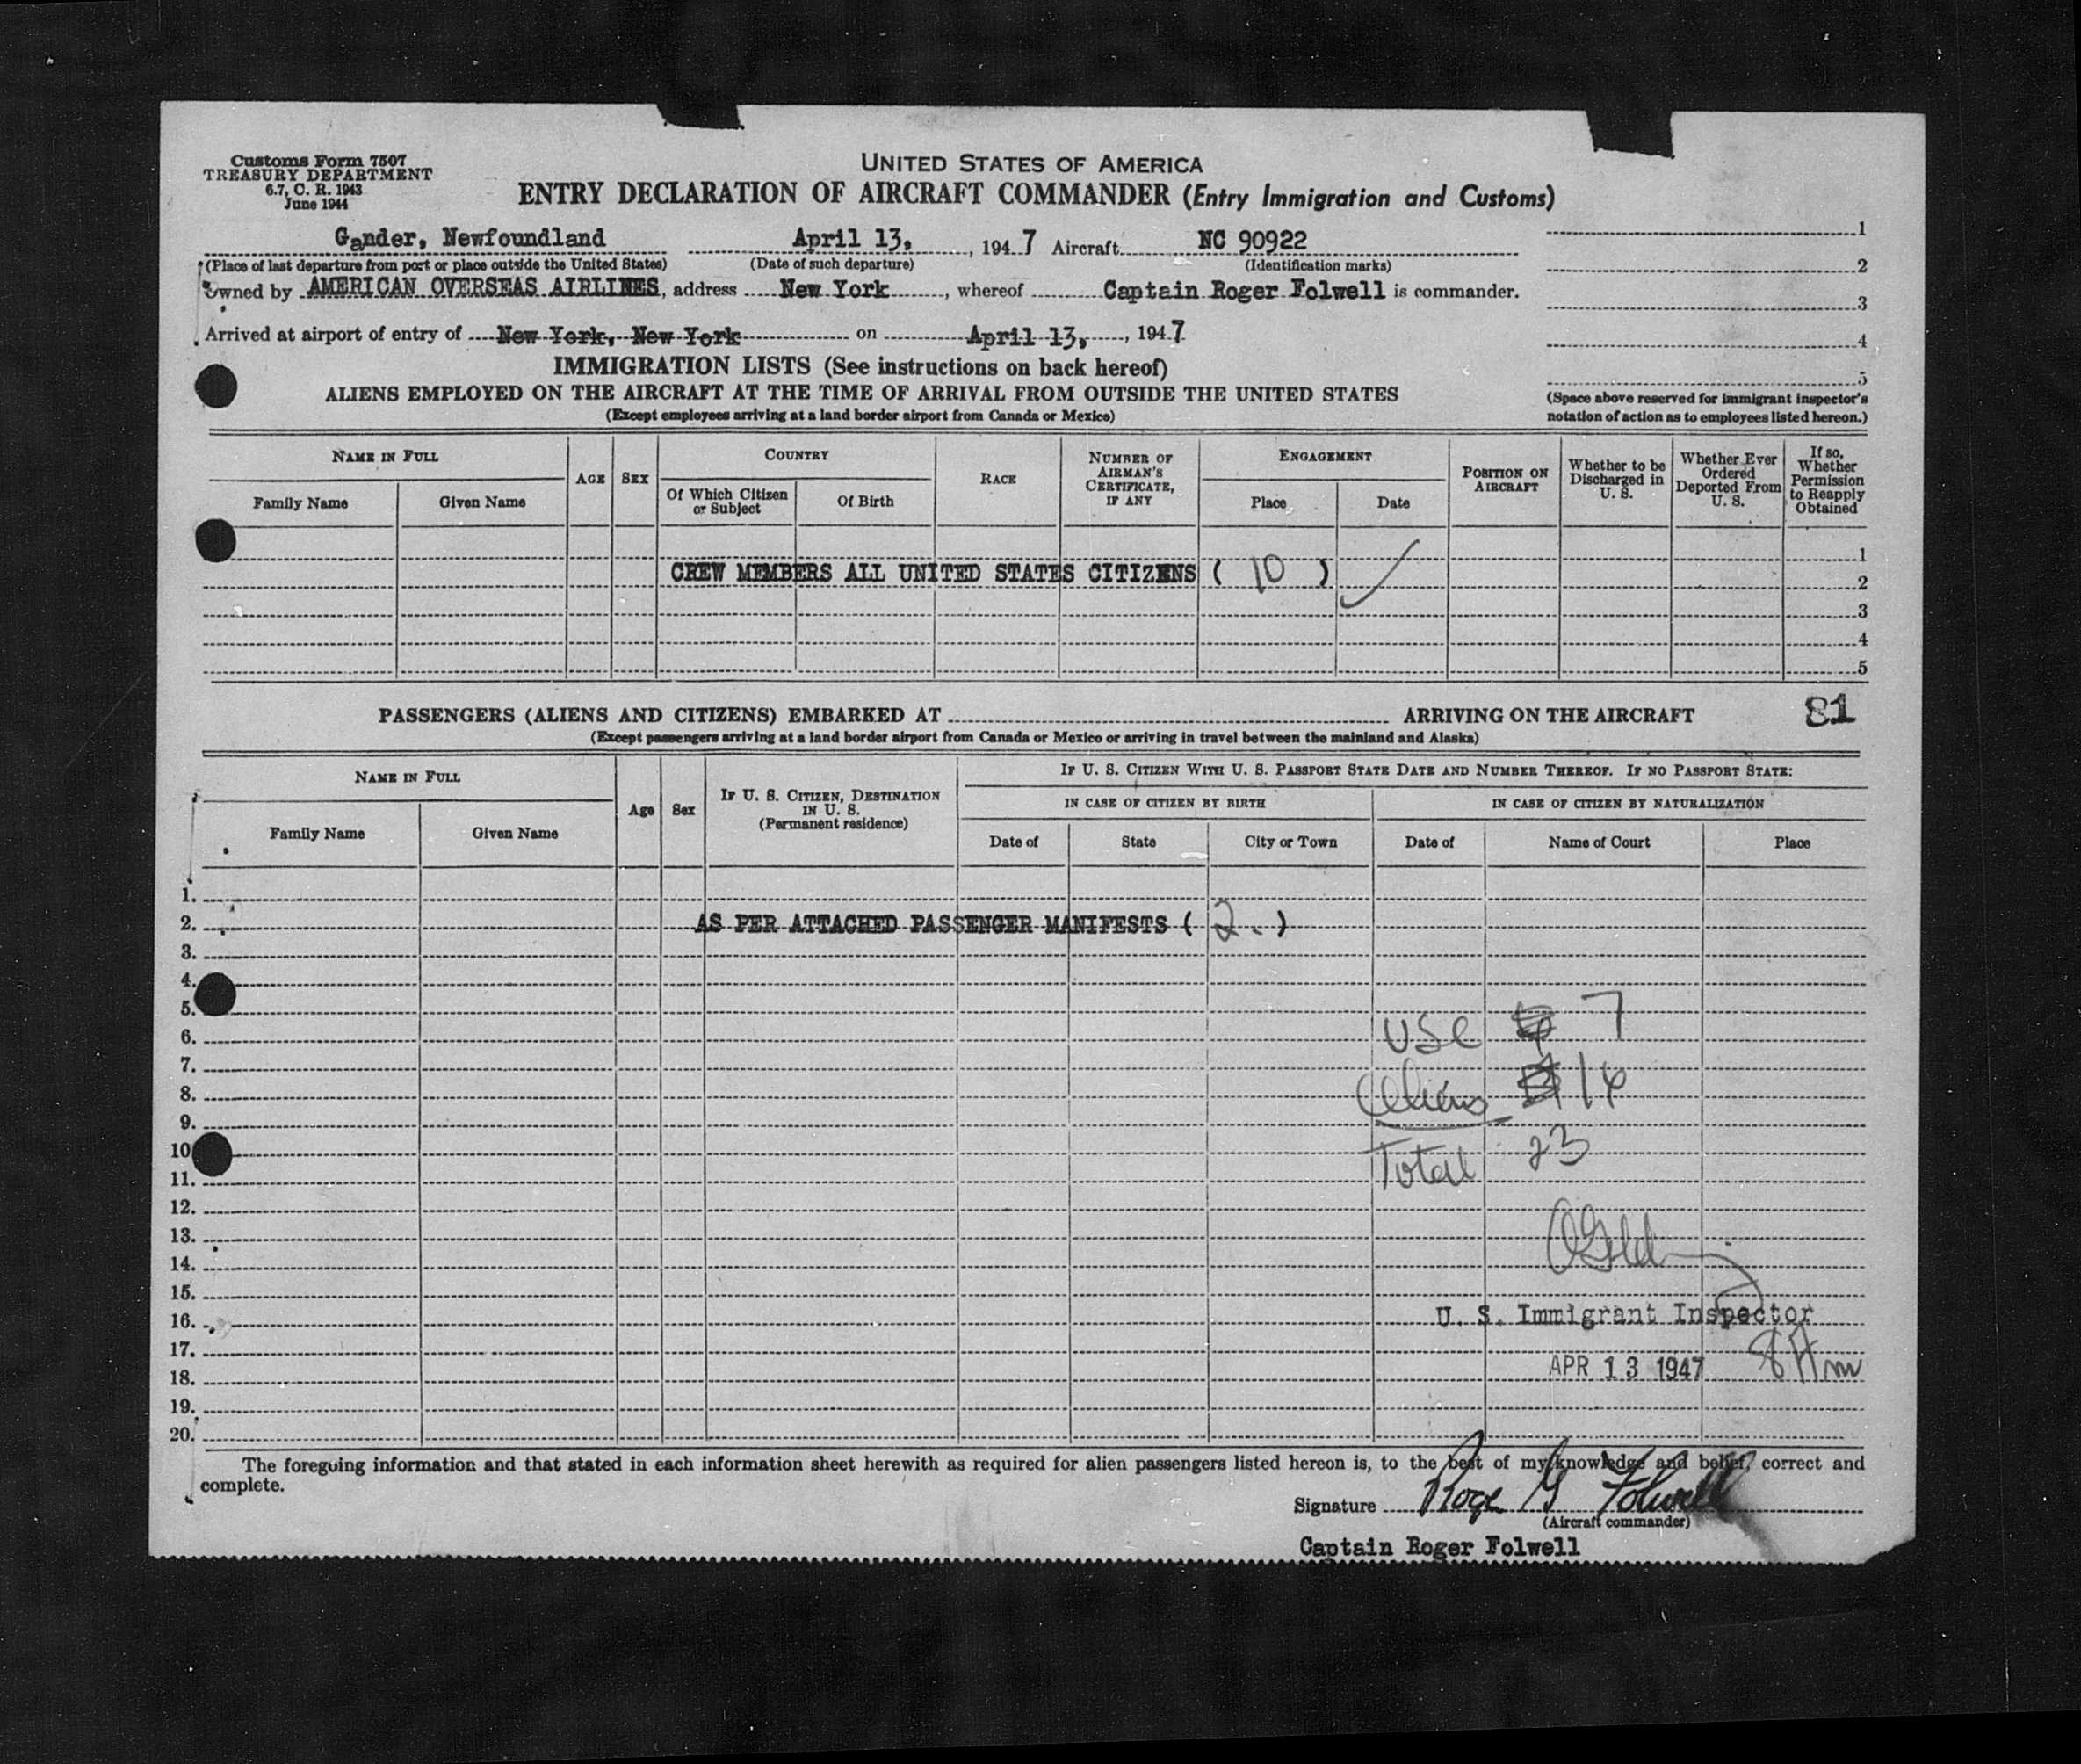 Customs Form 7507
TREASURY DEPARTMENT
6.7, C. R. 1943
June 1944
UNITED STATES OF AMERICA
ENTRY DECLARATION OF AIRCRAFT COMMANDER (Entry Immigration and Customs)
Gander, Newfoundland April 13, , 194 7 Aircraft NC 90922
(Place of last departure from port or place outside the United States) (Date of such departure) (Identification marks)
Owned by AMERICAN OVERSEAS AIRLINES, address New York , whereof Captain Roger Folwell is commander.
Arrived at airport of entry of New York, New York on April 13, , 194 7
1
2
3
4
5
(Space above reserved for immigrant inspector's
notation of action as to employees listed hereon.)
IMMIGRATION LISTS (See instructions on back hereof)
ALIENS EMPLOYED ON THE AIRCRAFT AT THE TIME OF ARRIVAL FROM OUTSIDE THE UNITED STATES
(Except employees arriving at a land border airport from Canada or Mexico)
NAME IN FULL
Family Name Given Name
AGE
SEX
COUNTRY
Of Which Citizen
or Subject
Of Birth
RACE
NUMBER OF
AIRMAN'S
CERTIFICATE,
IF ANY
ENGAGEMENT
Place Date
POSITION ON
AIRCRAFT
Whether to be
Discharged in
U. S.
Whether Ever
Ordered
Deported From
U. S.
If so,
Whether
Permission
to Reapply
Obtained
1
CREW MEMBERS ALL UNITED STATES CITIZENS ( 10 ) 2
3
4
5
PASSENGERS (ALIENS AND CITIZENS) EMBARKED AT ARRIVING ON THE AIRCRAFT 81
(Except passengers arriving at a land border airport from Canada or Mexico or arriving in travel between the mainland and Alaska)
NAME IN FULL
Family Name Given Name
Age
Sex
IF U. S. CITIZEN, DESTINATION
IN U. S.
(Permanent residence)
IF U. S. CITIZEN WITH U. S. PASSPORT STATE DATE AND NUMBER THEREOF. IF NO PASSPORT STATE:
IN CASE OF CITIZEN BY BIRTH IN CASE OF CITIZEN BY NATURALIZATION
Date of State City or Town Date of Name of Court Place
1.
2. AS PER ATTACHED PASSENGER MANIFESTS ( 2. )
3.
4.
5.
6. USC 7
7.
8. Aliens 16
9.
10 Total 23
11.
12.
13.
14.
15.
16. U. S. Immigrant Inspector
17.
18. APR 13 1947 8 Am
19.
20.
The foregoing information and that stated in each information sheet herewith as required for alien passengers listed hereon is, to the best of my knowledge and belief, correct and
complete.
Signature Roger G Folwell
(Aircraft commander)
Captain Roger Folwell